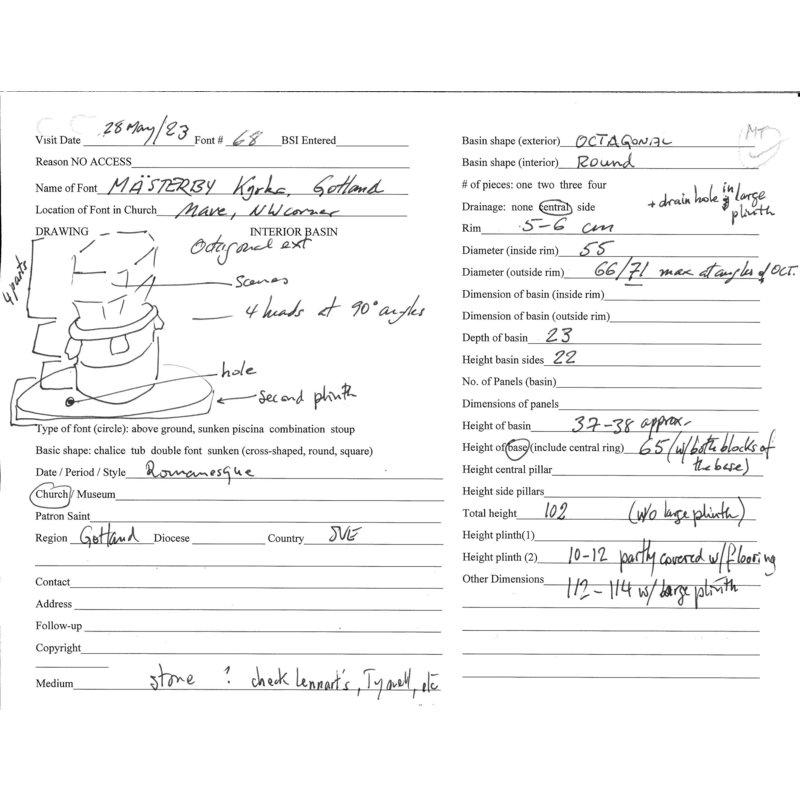 Visit Date 28 May/23 Font # 68 BSI Entered
Reason NO ACCESS
Name of Font MÄSTERBY Kyrka, Gotland
Location of Font in Church Nave, NW corner
DRAWING INTERIOR BASIN
Octagonal ext
4 parts
scenes
4 heads at 90° angles
hole
second plinth
Type of font (circle): above ground, sunken piscina combination stoup
Basic shape: chalice tub double font sunken (cross-shaped, round, square)
Date / Period / Style Romanesque
Church / Museum
Patron Saint
Region Gotland Diocese Country SVE
Contact
Address
Follow-up
Copyright
Medium stone ? check Lennart's, Tynell, etc
MT
Basin shape (exterior) OCTAGONAL
Basin shape (interior) Round
# of pieces: one two three four
Drainage: none central side + drain hole in large plinth
Rim 5-6 cm
Diameter (inside rim) 55
Diameter (outside rim) 66/71 max at angles of OCT.
Dimension of basin (inside rim)
Dimension of basin (outside rim)
Depth of basin 23
Height basin sides 22
No. of Panels (basin)
Dimensions of panels
Height of basin 37-38 approx.
Height of base (include central ring) 65 (w/ both blocks of the base)
Height central pillar
Height side pillars
Total height 102 (w/o large plinth)
Height plinth(1)
Height plinth (2) 10-12 partly covered w/ flooring
Other Dimensions 112-114 w/ large plinth